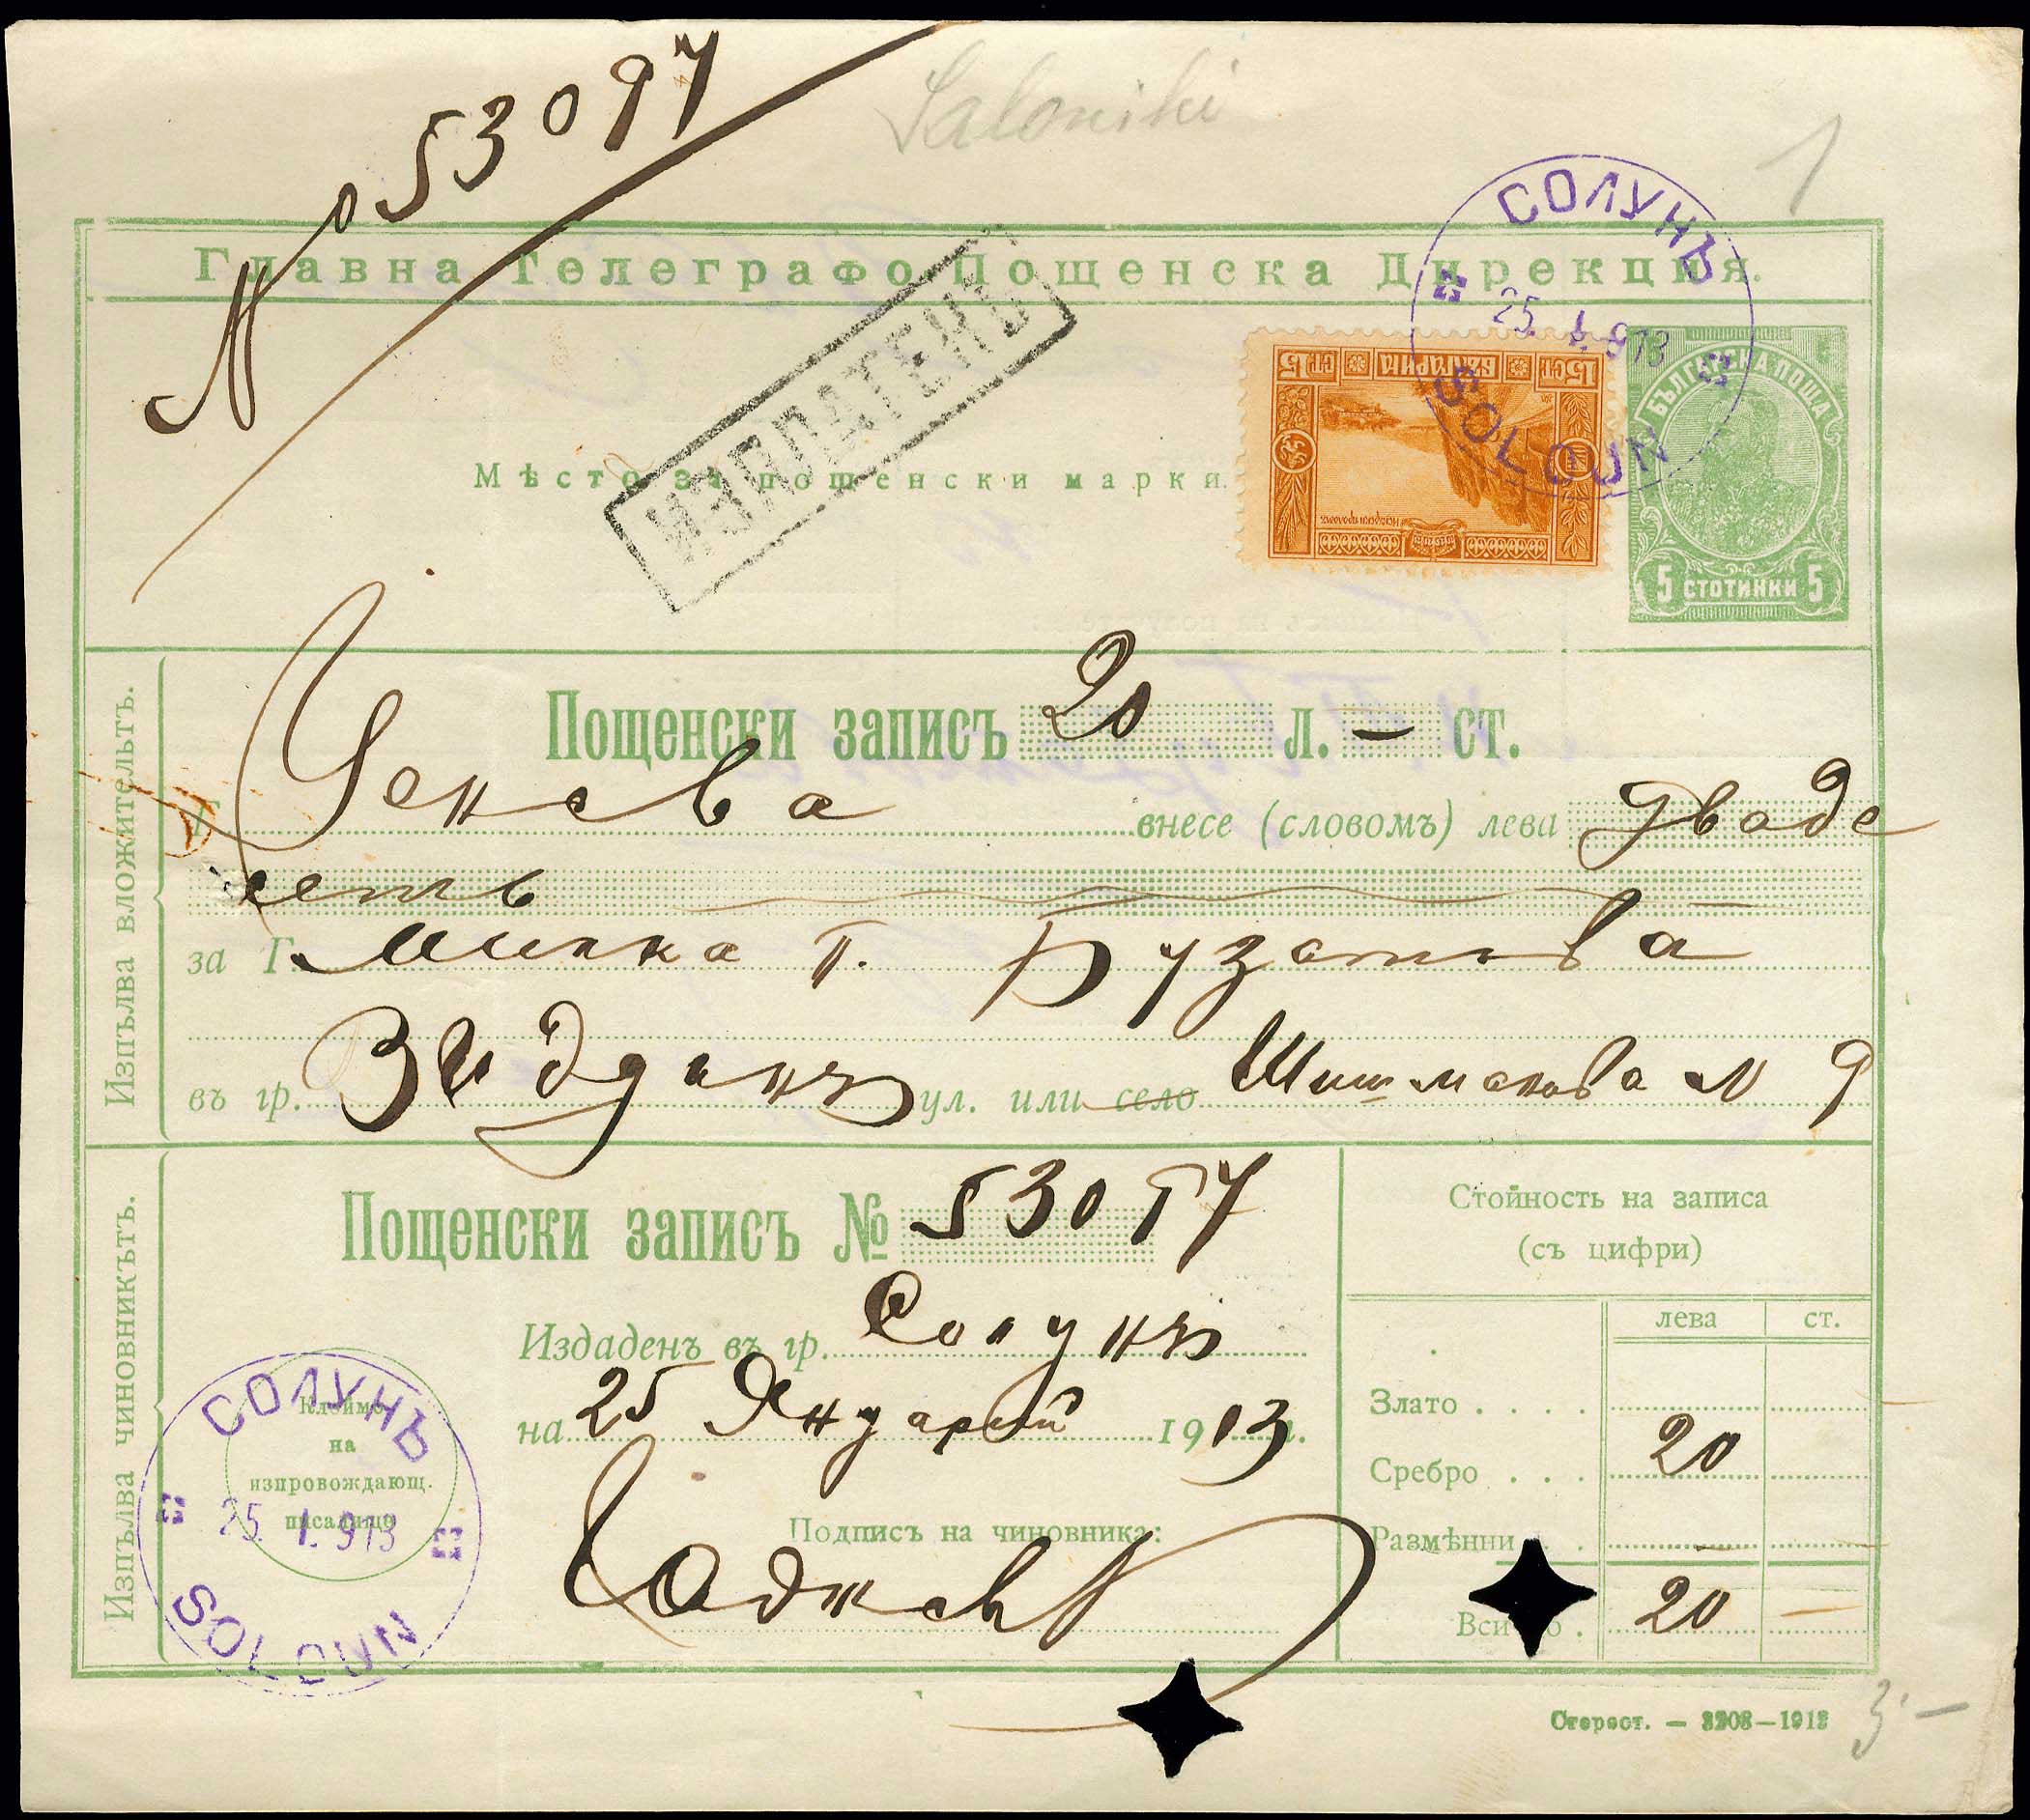 № 53097
Saloniki
1
СОЛУНЪ
25. I. 913
SOLOUN
Главна Телеграфо Пощенска Дирекция.
ИЗПЛАТЕНЪ
Мѣсто за пощенски марки.
15 СТ. БЪЛГАРИЯ 15 СТ.
БЪЛГАРСКА ПОЩА
5 СТОТИНКИ 5
Изпълва вложительтъ.
Пощенски записъ 20 л. — ст.
Г. Ценова внесе (словомъ) лева Двадe
сетъ
за Г. Минка П. Бузатова
въ гр. Виддинъ ул. или село Шишманова № 9
Изпълва чиновникътъ.
Пощенски записъ № 53097
Издаденъ въ гр. Солунъ
на 25 Януарий 1913 г.
Подписъ на чиновника:
Клеймо
на
изпровождающ.
писалище
СОЛУНЪ
25. I. 913
SOLOUN
Стойность на записа
(съ цифри)
лева ст.
Злато . . . .
Сребро . . . 20
Размѣнни . . —
Всичко . 20 —
3.–